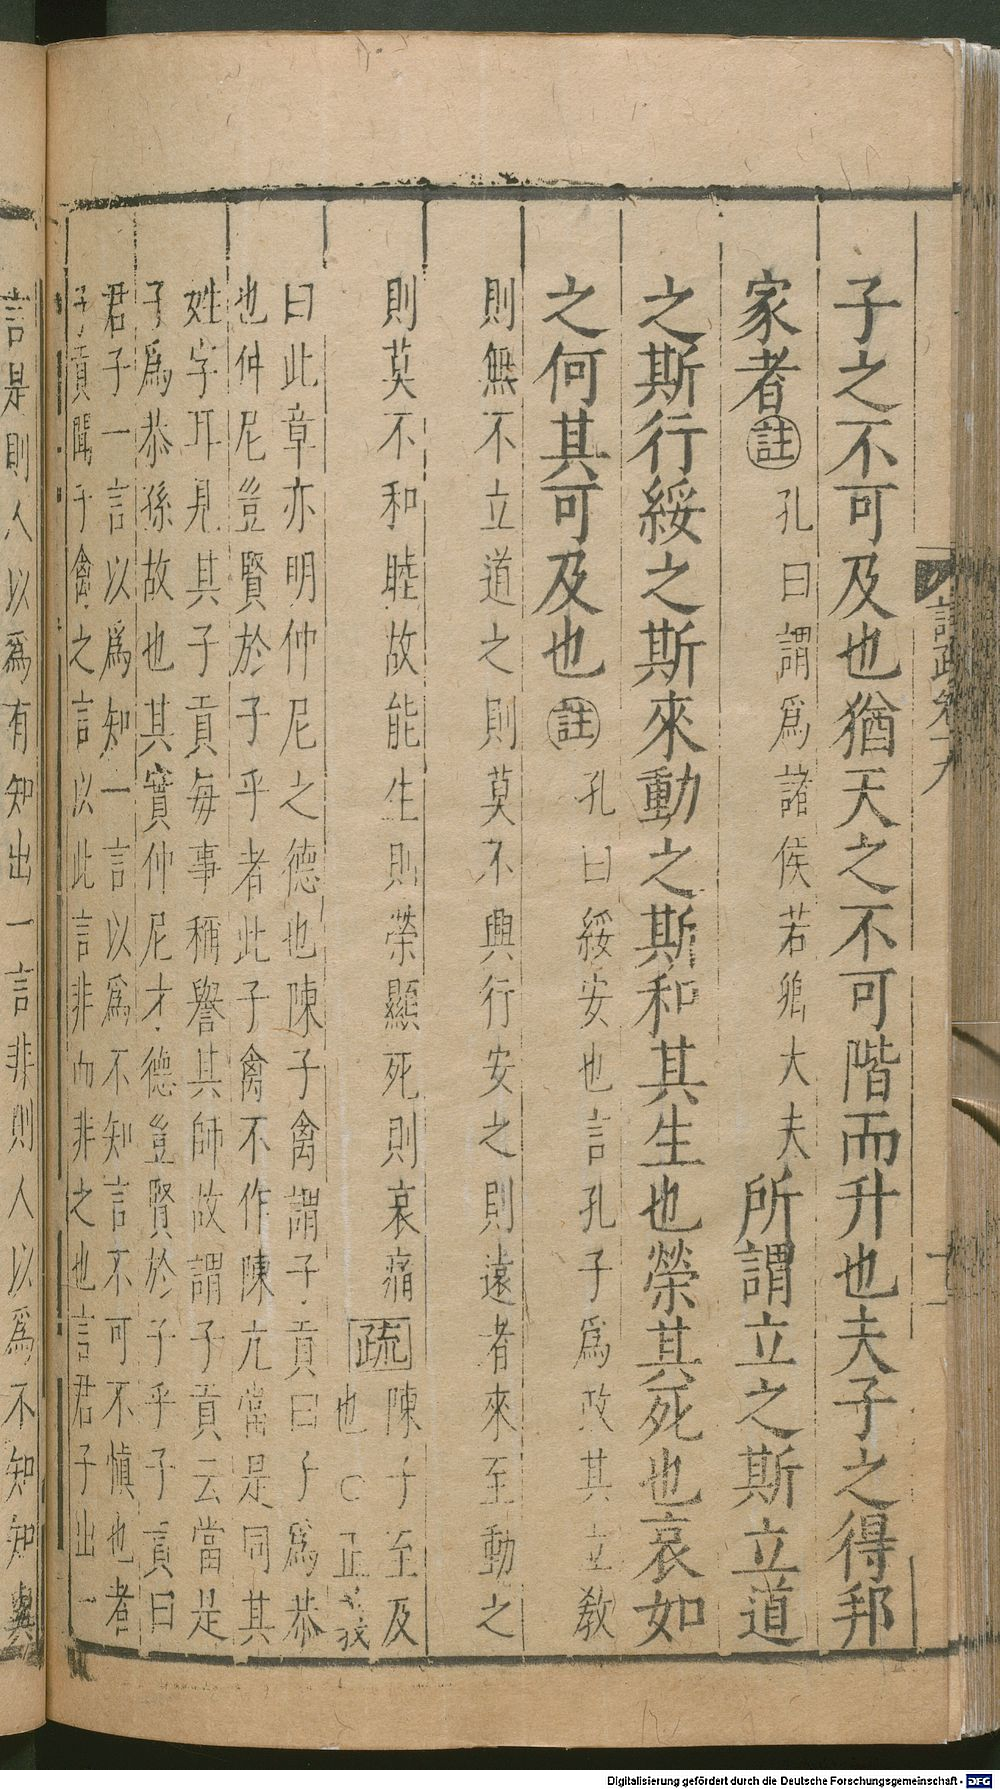 子之不可及也猶天之不可階而升也夫子之得邦
家者註孔曰謂爲諸侯若卿大夫所謂立之斯立道
之斯行綏之斯來動之斯和其生也榮其死也哀如
之何其可及也註孔曰綏安也言孔子爲政其立教
則無不立道之則莫不興行安之則遠者來至動之
則莫不和睦故能生則榮顯死則哀痛疏陳子至及
也○正義
曰此章亦明仲尼之德也陳子禽謂子貢曰子爲恭
也仲尼豈賢於子乎者此子禽不作陳亢當是同其
姓字耳見其子貢每事稱譽其師故謂子貢云當是
子爲恭孫故也其實仲尼才德豈賢於子乎子貢曰
君子一言以爲知一言以爲不知言不可不慎也者
子貢聞子禽之言以此言非而非之也言君子出一
言是則人以爲有知出一言非則人以爲不知知與
Digitalisierung gefördert durch die Deutsche Forschungsgemeinschaft - DFG